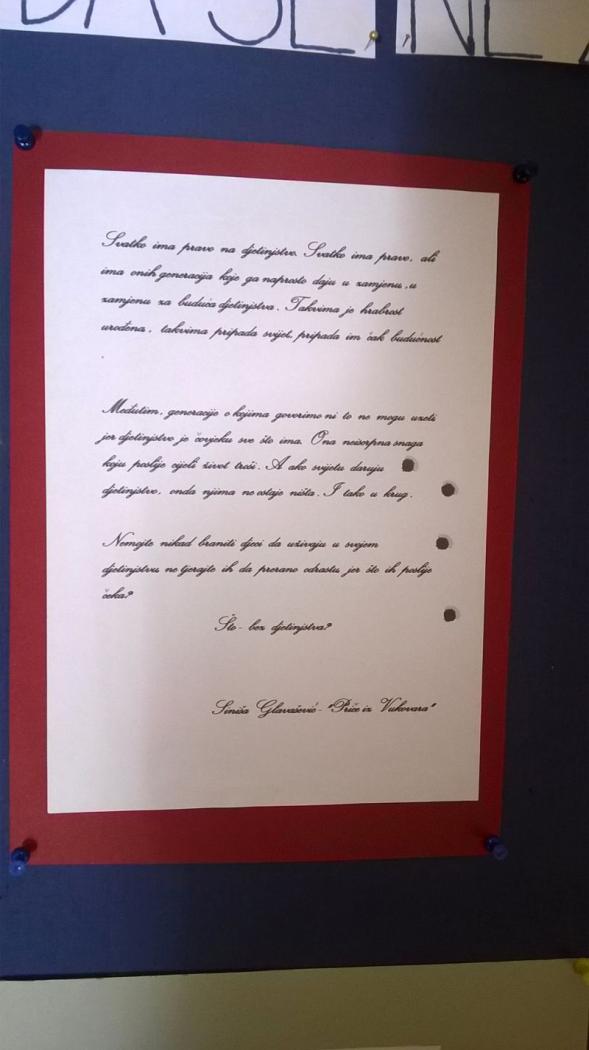 DA SE NE
Svatko ima pravo na djetinjstvo. Svatko ima pravo, ali
ima onih generacija koje ga naprosto daju u zamjenu, u
zamjenu za buduća djetinjstva. Takvima je hrabrost
urođena, takvima pripada svijet, pripada im čak budućnost
.
Međutim, generacije o kojima govorimo ni to ne mogu uzeti
jer djetinjstvo je čovjeku sve što ima. Ona neiscrpna snaga
koju poslije cijeli život troši. A ako svijetu daruju
djetinjstvo, onda njima ne ostaje ništa. I tako u krug.
Nemojte nikad braniti djeci da uživaju u svojem
djetinjstvu, ne tjerajte ih da prerano odrastu, jer što ih poslije
čeka?
Što - bez djetinjstva?
Siniša Glavašević - "Priče iz Vukovara"